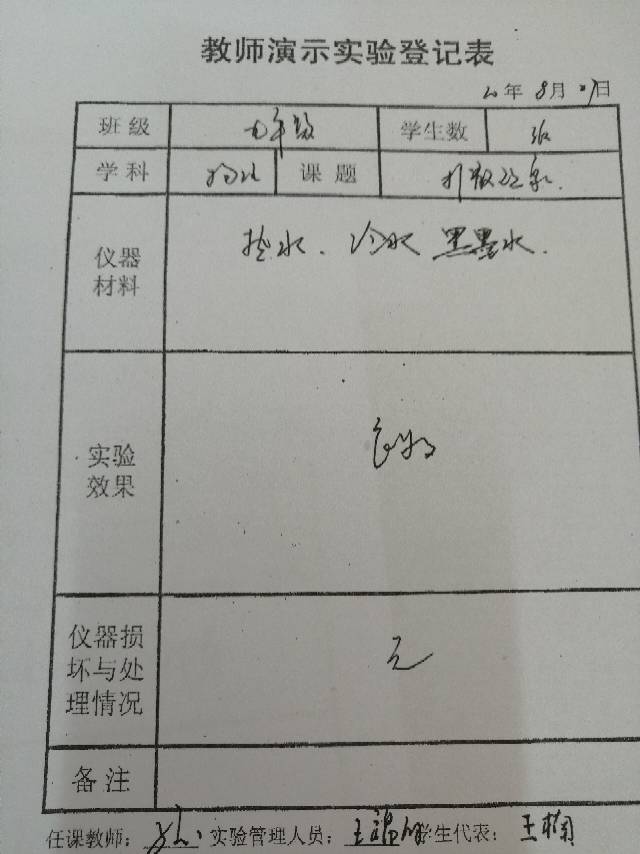 教师演示实验登记表
年 8月 日
班级 九年级 学生数
学科 物理 课题 扩散现象.
仪器材料 热水、冷水 黑墨水.
实验效果 良好
仪器损坏与处理情况 无
备注
任课教师: 实验管理人员: 王 学生代表: 王